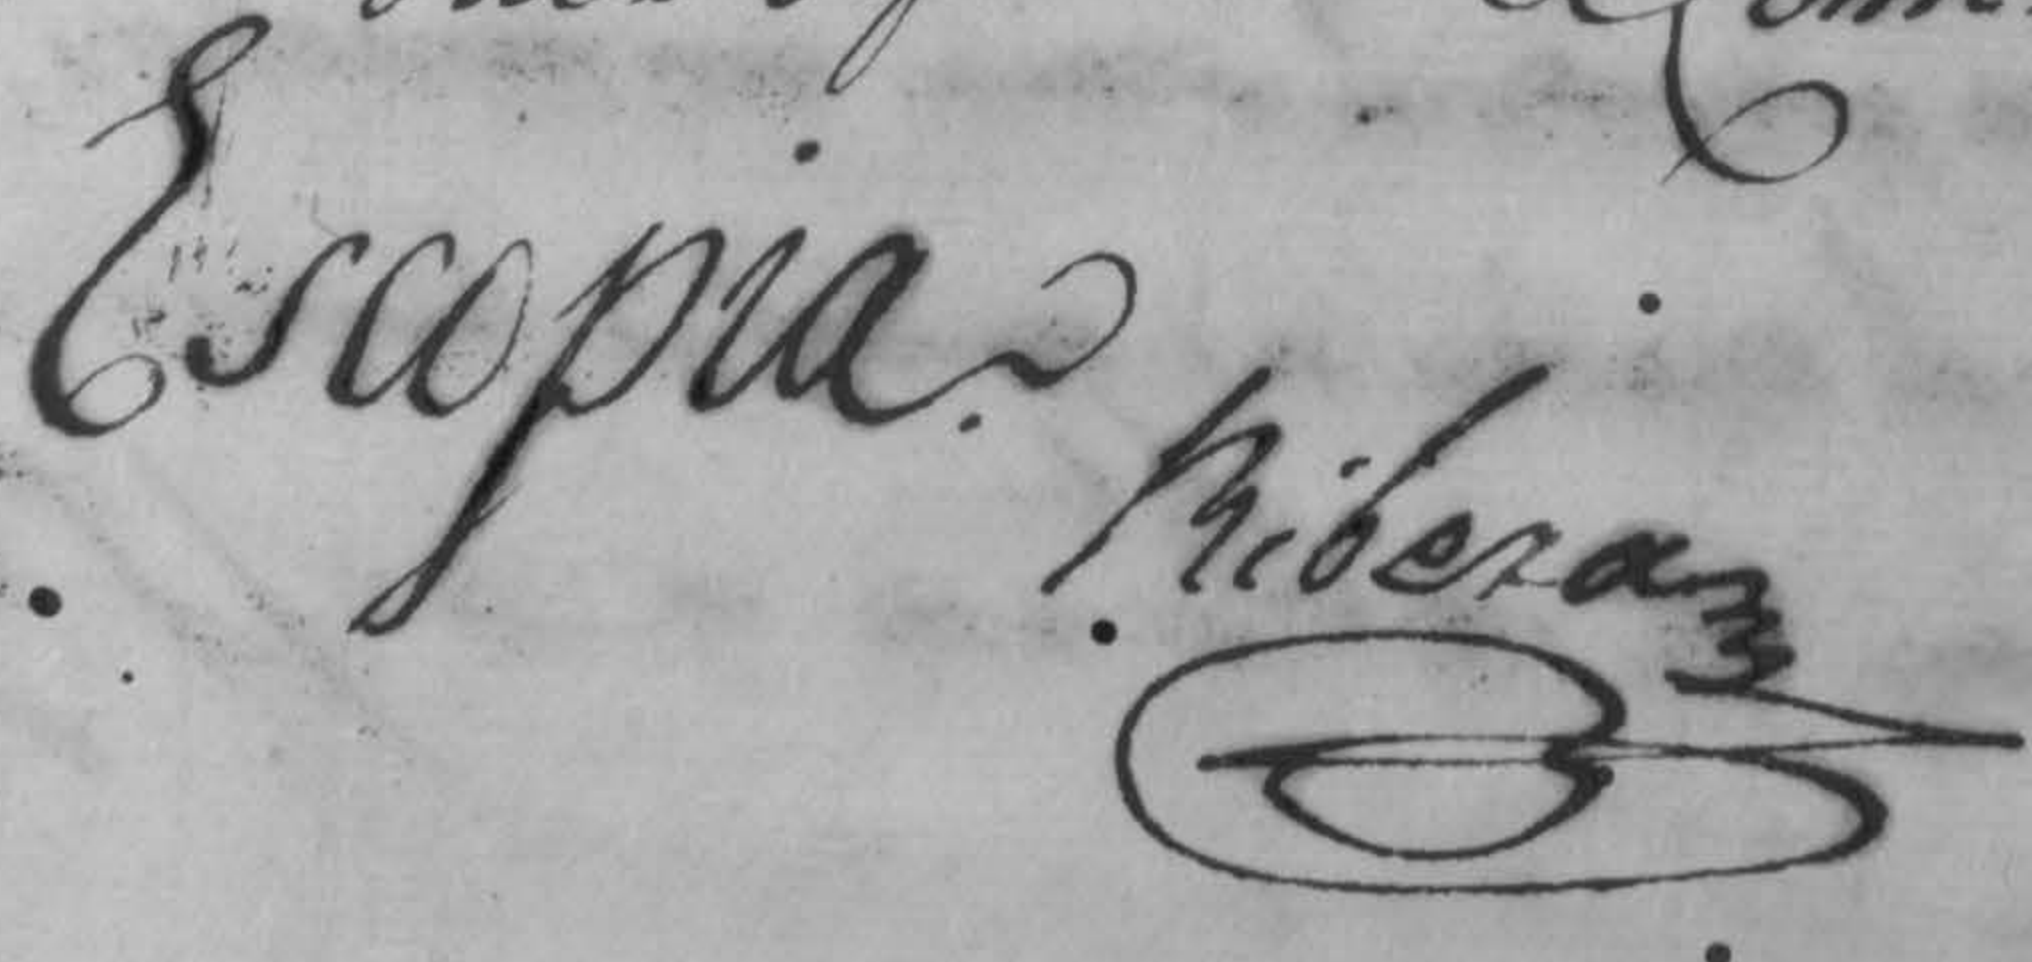 Es copia.
Ribera